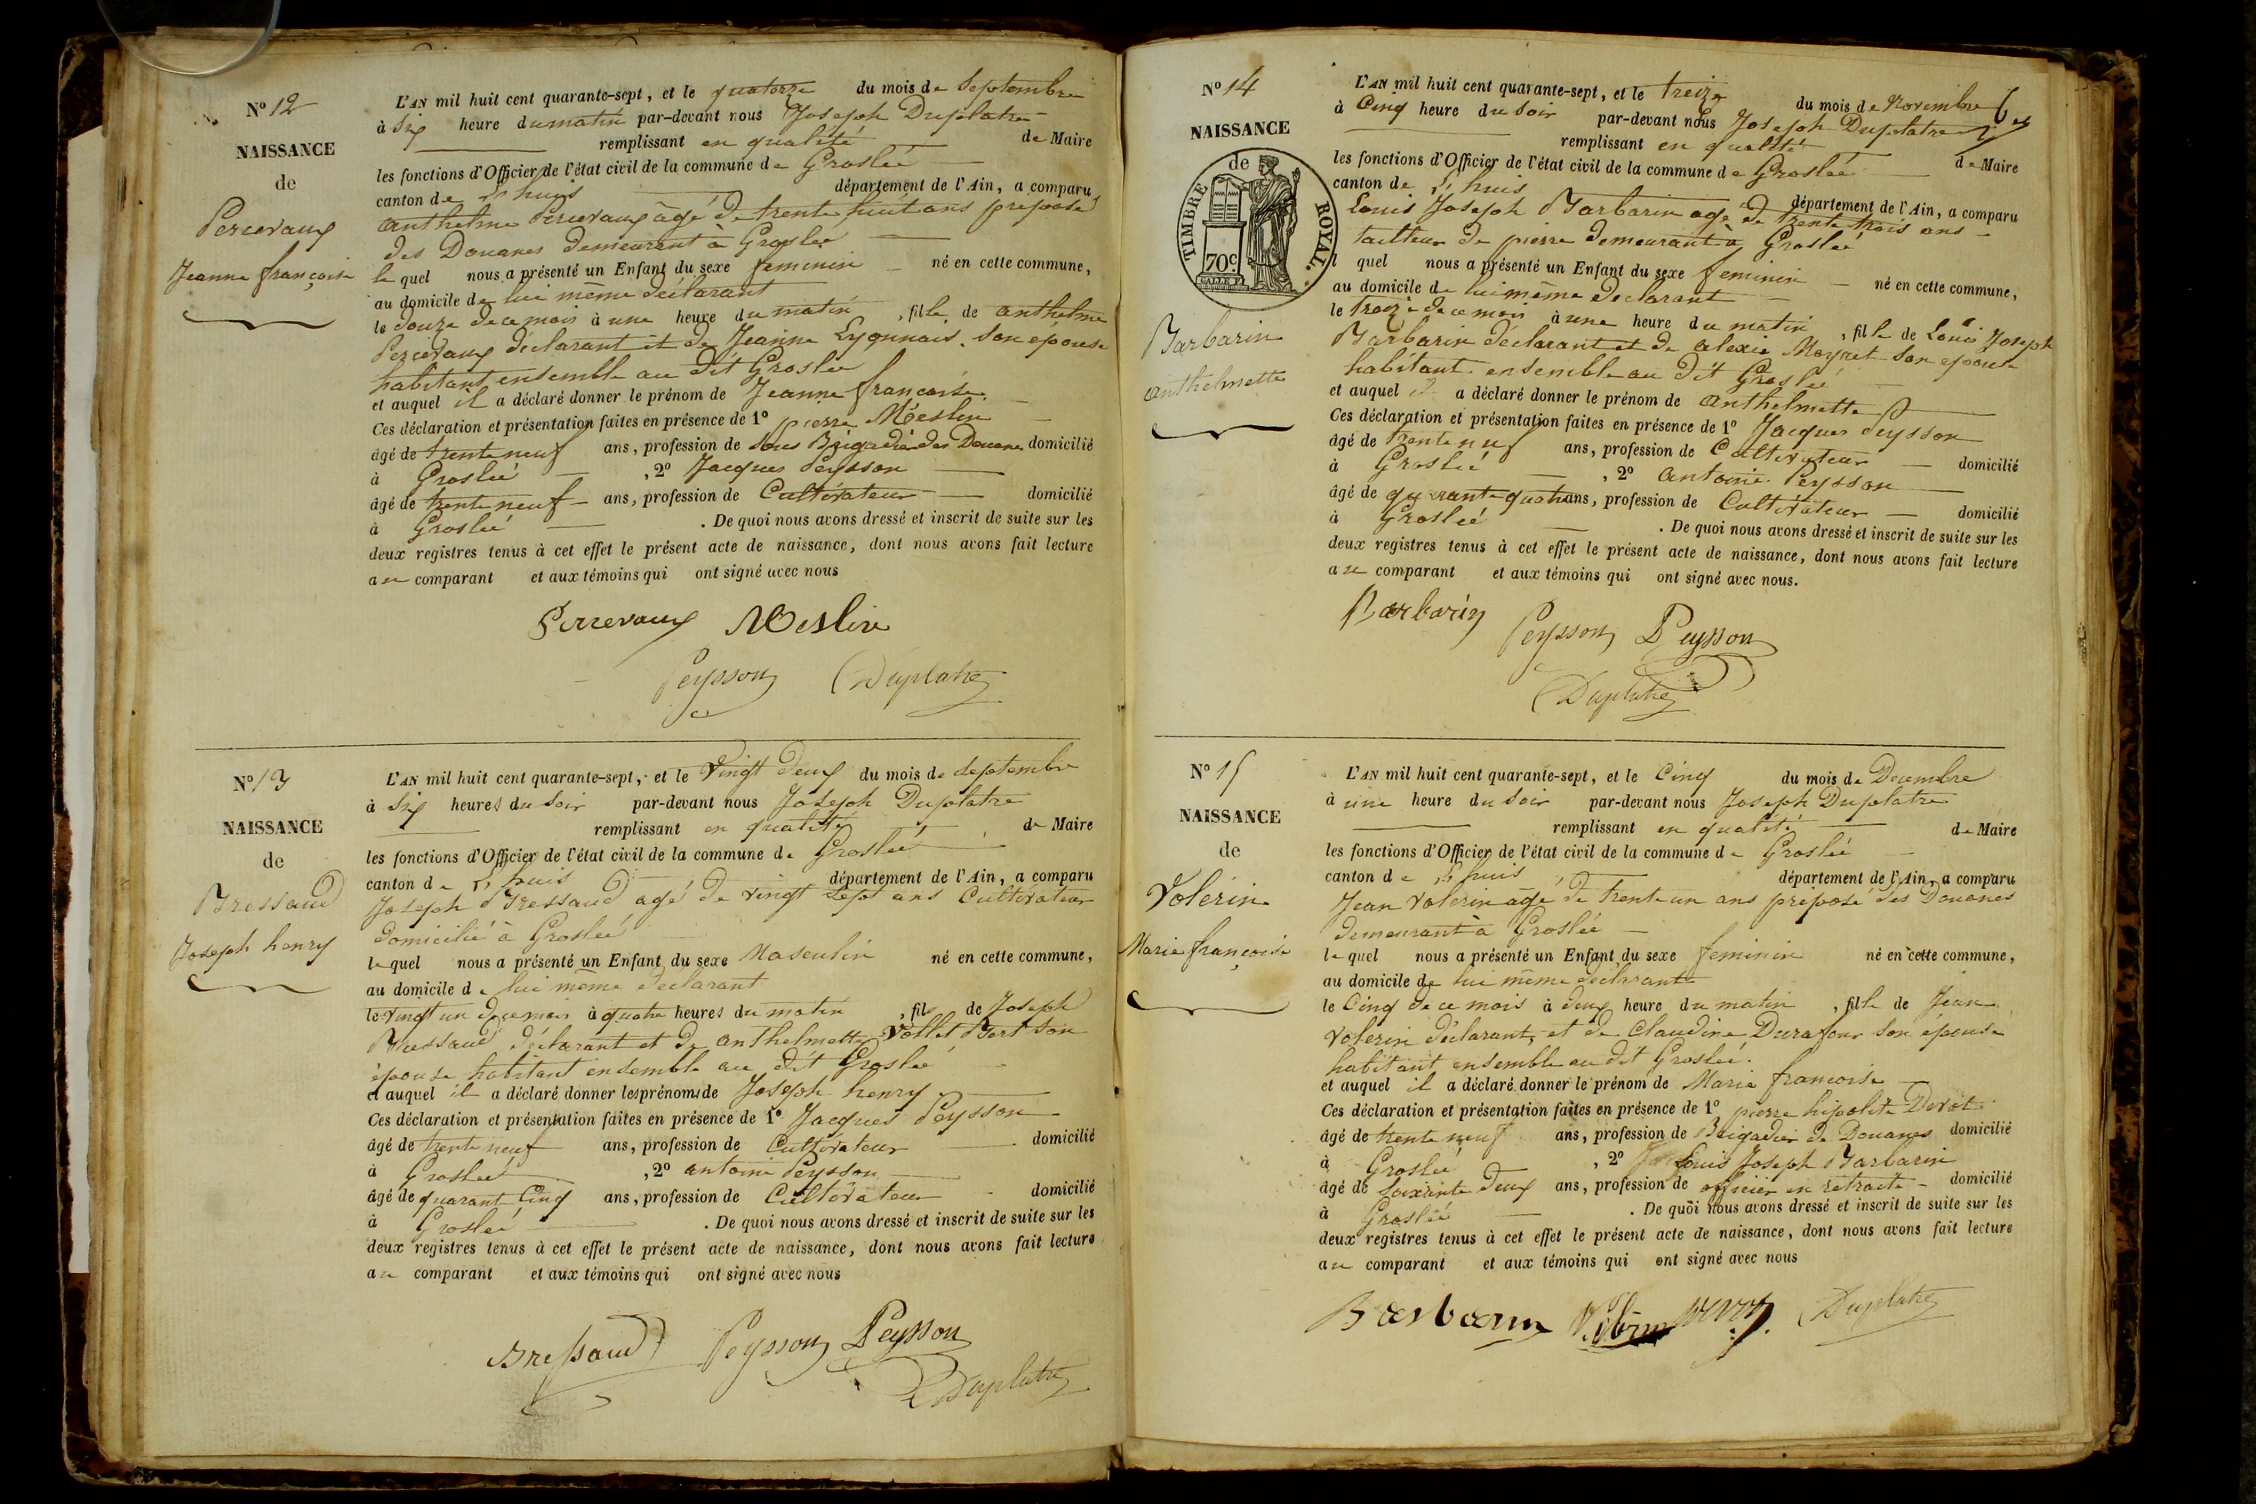 N° 12
NAISSANCE
de
Percevaux
Jeanne françoise
L'AN mil huit cent quarante-sept, et le quatorze du mois de Septembre
à Six heure du matin par-devant nous Joseph Duplatre
remplissant en qualité de Maire
les fonctions d'Officier de l'état civil de la commune de Groslée
canton de L'huis département de l'Ain, a comparu
anthelme Percevaux âgé de trente huit ans préposé
des Douanes demeurant à Groslée
le quel nous a présenté un Enfant du sexe feminin né en cette commune,
au domicile de lui même déclarant
le douze de ce mois à une heure du matin, fille de anthelme
Percevaux déclarant et de Jeanne Lyonnais son épouse
habitant ensemble au dit Groslée
et auquel il a déclaré donner le prénom de Jeanne françoise
Ces déclaration et présentation faites en présence de 1° pierre Meslin
âgé de trente neuf ans, profession de Sous Brigadié des Douanes domicilié
à Groslée, 2° Jacques Peysson
âgé de trente neuf ans, profession de Cultivateur domicilié
à Groslée. De quoi nous avons dressé et inscrit de suite sur les
deux registres tenus à cet effet le présent acte de naissance, dont nous avons fait lecture
au comparant et aux témoins qui ont signé avec nous
Percevaux Meslin
Peysson Duplatre
N° 13
NAISSANCE
de
Bressaud
Joseph henry
L'AN mil huit cent quarante-sept, et le Vingt deux du mois de Septembre
à Six heures du Soir par-devant nous Joseph Duplatre
remplissant en qualité de Maire
les fonctions d'Officier de l'état civil de la commune de Groslée
canton de L'huis département de l'Ain, a comparu
Joseph Bressaud agé de vingt Sept ans Cultivateur
domicilié à Groslée
le quel nous a présenté un Enfant du sexe Masculin né en cette commune,
au domicile de lui même déclarant
le vingt un de ce mois à quatre heures du matin, fils de Joseph
Bressaud déclarant et de anthelmette Vollet Bert Son
épouse habitant ensemble au dit Groslée
et auquel il a déclaré donner les prénoms de Joseph henry
Ces déclaration et présentation faites en présence de 1° Jacques Peysson
âgé de trente neuf ans, profession de Cultivateur domicilié
à Groslée, 2° antoine Peysson
âgé de quarant Cinq ans, profession de Cultivateur domicilié
à Groslée. De quoi nous avons dressé et inscrit de suite sur les
deux registres tenus à cet effet le présent acte de naissance, dont nous avons fait lecture
au comparant et aux témoins qui ont signé avec nous
Bressaud Peysson Peysson
Duplatre
N° 14
NAISSANCE
de
TIMBRE ROYAL.
70c.
Barbarin
anthelmette
L'AN mil huit cent quarante-sept, et le treize du mois de Novembre
à Cinq heure du Soir par-devant nous Joseph Duplatre
remplissant en qualité de Maire
les fonctions d'Officier de l'état civil de la commune de Groslée
canton de L'huis département de l'Ain, a comparu
Louis Joseph Barbarin agé de trente trois ans
tailleur de pierre demeurant à Groslée
l quel nous a présenté un Enfant du sexe feminin né en cette commune,
au domicile de lui même déclarant
le treize de ce mois à une heure du matin, fille de Louis Joseph
Barbarin déclarant et de alexie Meyret Son épouse
habitant ensemble au dit Groslée
et auquel il a déclaré donner le prénom de anthelmette
Ces déclaration et présentation faites en présence de 1° Jacques Peysson
âgé de trente neuf ans, profession de Cultivateur domicilié
à Groslée, 2° antoine Peysson
âgé de quarante quatre ans, profession de Cultivateur domicilié
à Groslée. De quoi nous avons dressé et inscrit de suite sur les
deux registres tenus à cet effet le présent acte de naissance, dont nous avons fait lecture
au comparant et aux témoins qui ont signé avec nous.
Barbarin Peysson Peysson
Duplatre
N° 15
NAISSANCE
de
Volerin
Marie françoise
L'AN mil huit cent quarante-sept, et le Cinq du mois de Decembre
à une heure du Soir par-devant nous Joseph Duplatre
remplissant en qualité de Maire
les fonctions d'Officier de l'état civil de la commune de Groslée
canton de L'huis département de l'Ain, a comparu
Jean Volerin âgé de trente un ans préposé des Douanes
demeurant à Groslée
le quel nous a présenté un Enfant du sexe feminin né en cette commune,
au domicile de lui même déclarant
le Cinq de ce mois à deux heure du matin, fille de Jean
Volerin déclarant, et de Claudine Durafour son épouse
habitant ensemble au dit Groslée.
et auquel il a déclaré donner le prénom de Marie françoise
Ces déclaration et présentation faites en présence de 1° pierre hipolite
âgé de trente neuf ans, profession de Brigadier de Douanes domicilié
à Groslée, 2° Louis Joseph Barbarin
âgé de Soixante deux ans, profession de officier en retraite domicilié
à Groslée. De quoi nous avons dressé et inscrit de suite sur les
deux registres tenus à cet effet le présent acte de naissance, dont nous avons fait lecture
au comparant et aux témoins qui ont signé avec nous
Barbarin Duplatre